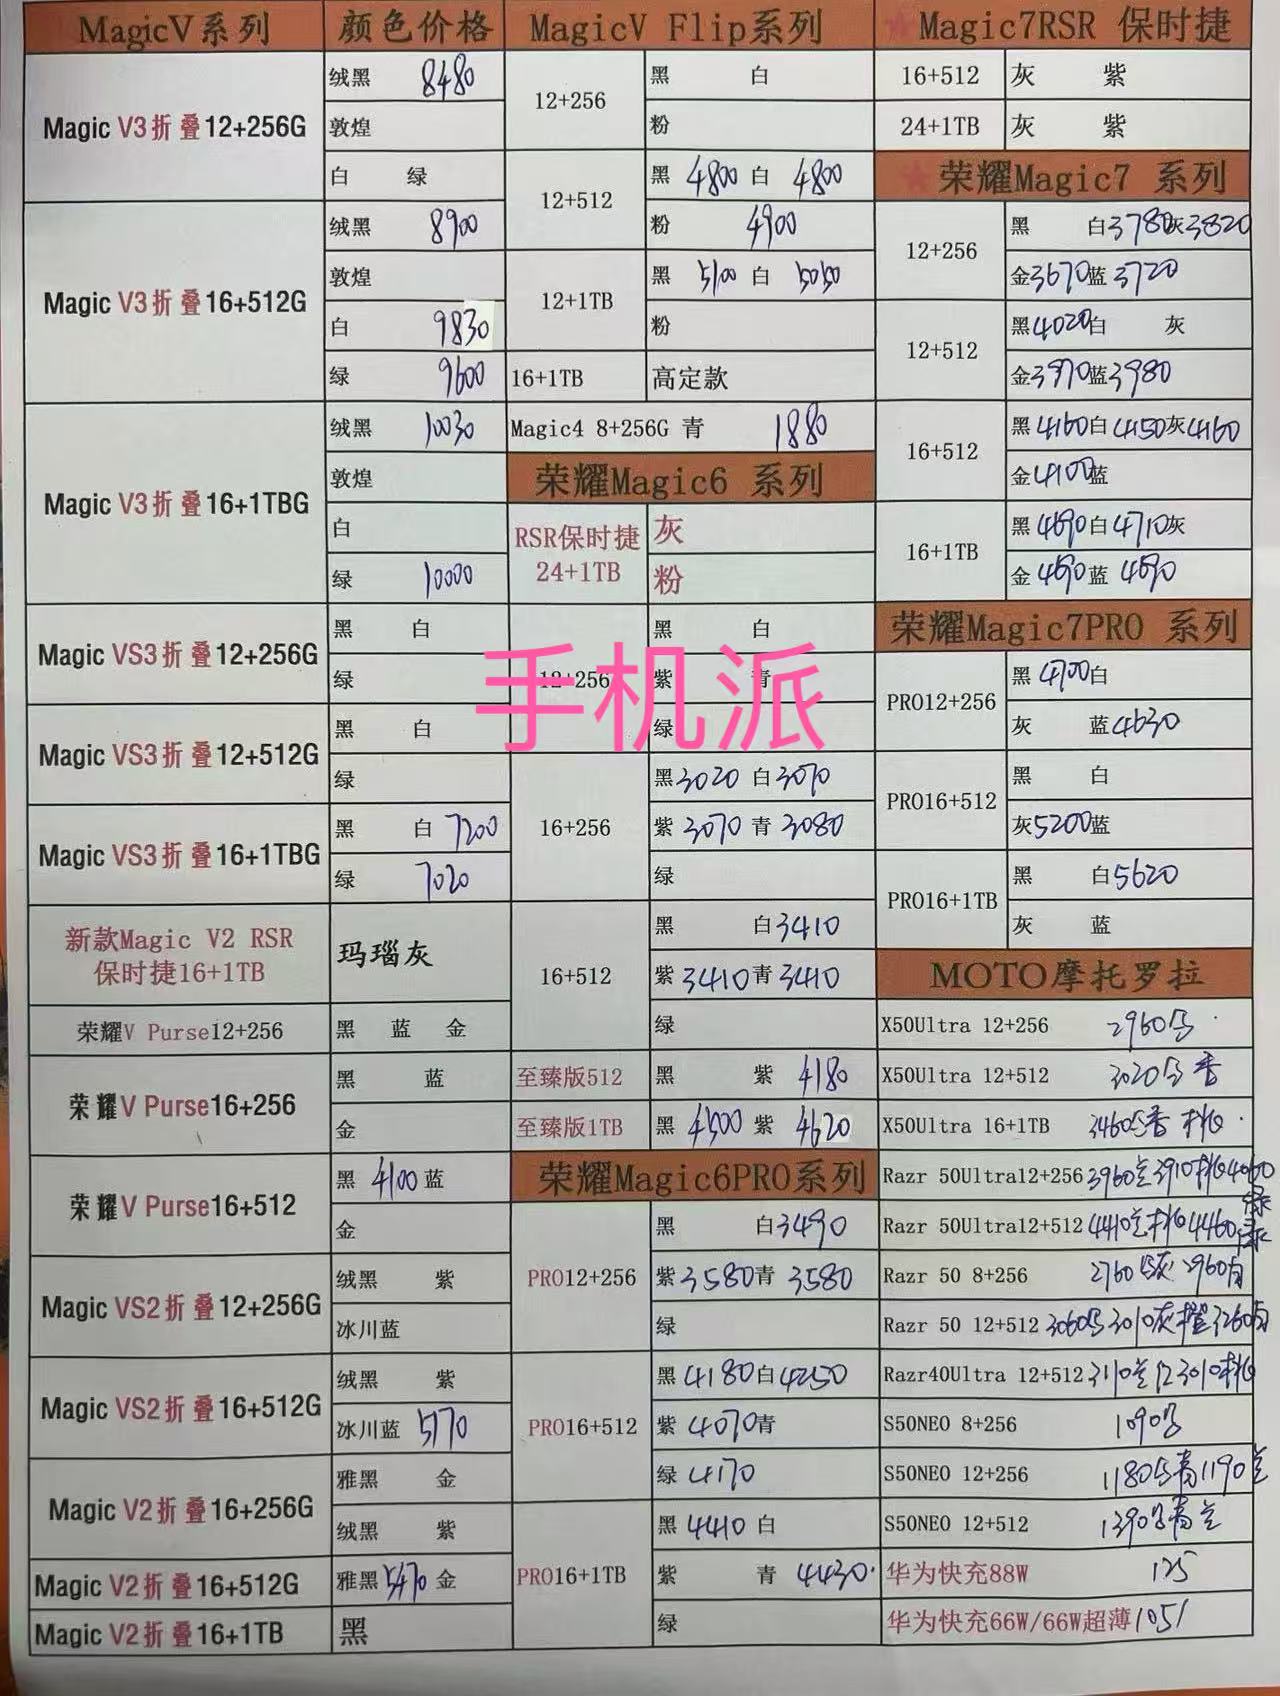 MagicV系列 颜色价格
Magic V3折叠12+256G
绒黑 8480
敦煌
白 绿
Magic V3折叠16+512G
绒黑 8900
敦煌
白 9830
绿 9600
Magic V3折叠16+1TBG
绒黑 10030
敦煌
白
绿 10000
Magic VS3折叠12+256G
黑 白
绿
Magic VS3折叠12+512G
黑 白
绿
Magic VS3折叠16+1TBG
黑 白 7200
绿 7020
新款Magic V2 RSR
保时捷16+1TB
玛瑙灰
荣耀V Purse12+256
黑 蓝 金
荣耀V Purse16+256
黑 蓝
金
荣耀V Purse16+512
黑 4100 蓝
金
Magic VS2折叠12+256G
绒黑 紫
冰川蓝
Magic VS2折叠16+512G
绒黑 紫
冰川蓝 5170
Magic V2折叠16+256G
雅黑 金
绒黑 紫
Magic V2折叠16+512G
雅黑 5470 金
Magic V2折叠16+1TB
黑
MagicV Flip系列
12+256
黑 白
粉
12+512
黑 4800 白 4800
粉 4900
12+1TB
黑 5100 白 5050
粉
16+1TB 高定款
Magic4 8+256G 青 1880
荣耀Magic6 系列
RSR保时捷
24+1TB
灰
粉
12+256
黑 白
紫 青
绿
16+256
黑3020 白3070
紫 3070 青 3080
绿
16+512
黑 白3410
紫 3410 青 3410
绿
至臻版512 黑 紫 4180
至臻版1TB 黑 4500 紫 4620
荣耀Magic6PRO系列
PRO12+256
黑 白3490
紫3580青 3580
绿
PRO16+512
黑 4180白4250
紫 4070青
绿 4170
PRO16+1TB
黑 4410 白
紫 青 4430
绿
Magic7RSR 保时捷
16+512 灰 紫
24+1TB 灰 紫
荣耀Magic7 系列
12+256
黑 白3780灰3820
金3670蓝 3720
12+512
黑4020白 灰
金3970蓝3980
16+512
黑 4160白 4150灰4160
金4100蓝
16+1TB
黑 4690白 4710灰
金 4690蓝 4690
荣耀Magic7PRO 系列
PRO12+256
黑 4700白
灰 蓝4630
PRO16+512
黑 白
灰5200蓝
PRO16+1TB
黑 白5620
灰 蓝
MOTO摩托罗拉
X50Ultra 12+256 2960
X50Ultra 12+512 3020
X50Ultra 16+1TB 3460 桃
Razr 50Ultra12+256 3960 3910桃4060绿
Razr 50Ultra12+512 4410 桃4460绿
Razr 50 8+256 2760 灰 2960白
Razr 50 12+512 3060 3010灰橙3260白
Razr40Ultra 12+512 3110 3010桃
S50NEO 8+256 1090
S50NEO 12+256 1180 1190兰
S50NEO 12+512 1390 兰
华为快充88W 125
华为快充66W/66W超薄 105
手机派